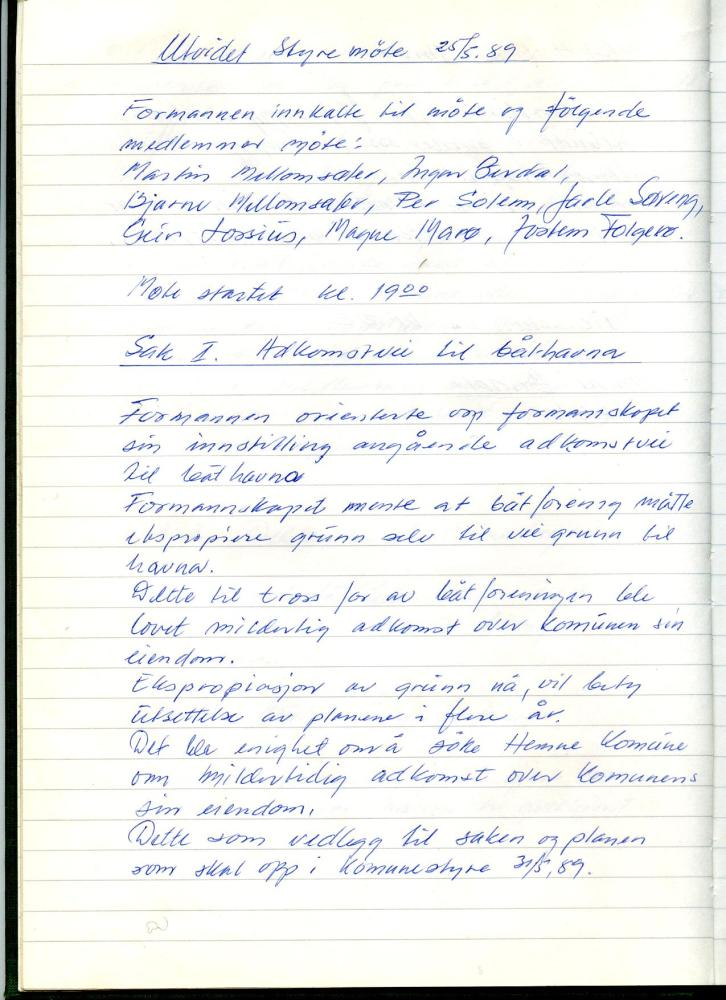 Utvidet Styremöte 25/5.89
Formannen innkalte til möte og fölgende
medlemmer möte:
Martin Mellomsæter, Ingar Berdal,
Bjarne Mellomsæter, Per Solem, Jarle Søreng,
Geir Lossius, Magne Marø, Jostein Følgerø.
Mote startet kl. 19 00
Sak I. Adkomstvei til båthavna
Formannen orienterte om formannskapet
sin innstilling angående adkomstvei
til båthavna
Formannskapet mente at båtforening måtte
ekspropiere grunn selv til veigrunn til
havna.
Dette til tross for av båtforeningen ble
lovet midlertig adkomst over Komunen sin
eiendom.
Ekspropiasjon av grunn nå, vil bety
utsettelse av planene i flere år.
Det ble enighet om å söke Hemne Komune
om midlertidig adkomst over Komunens
sin eiendom.
Dette som vedlegg til saken og planen
som skal opp i Komunestyre 31/5,89.